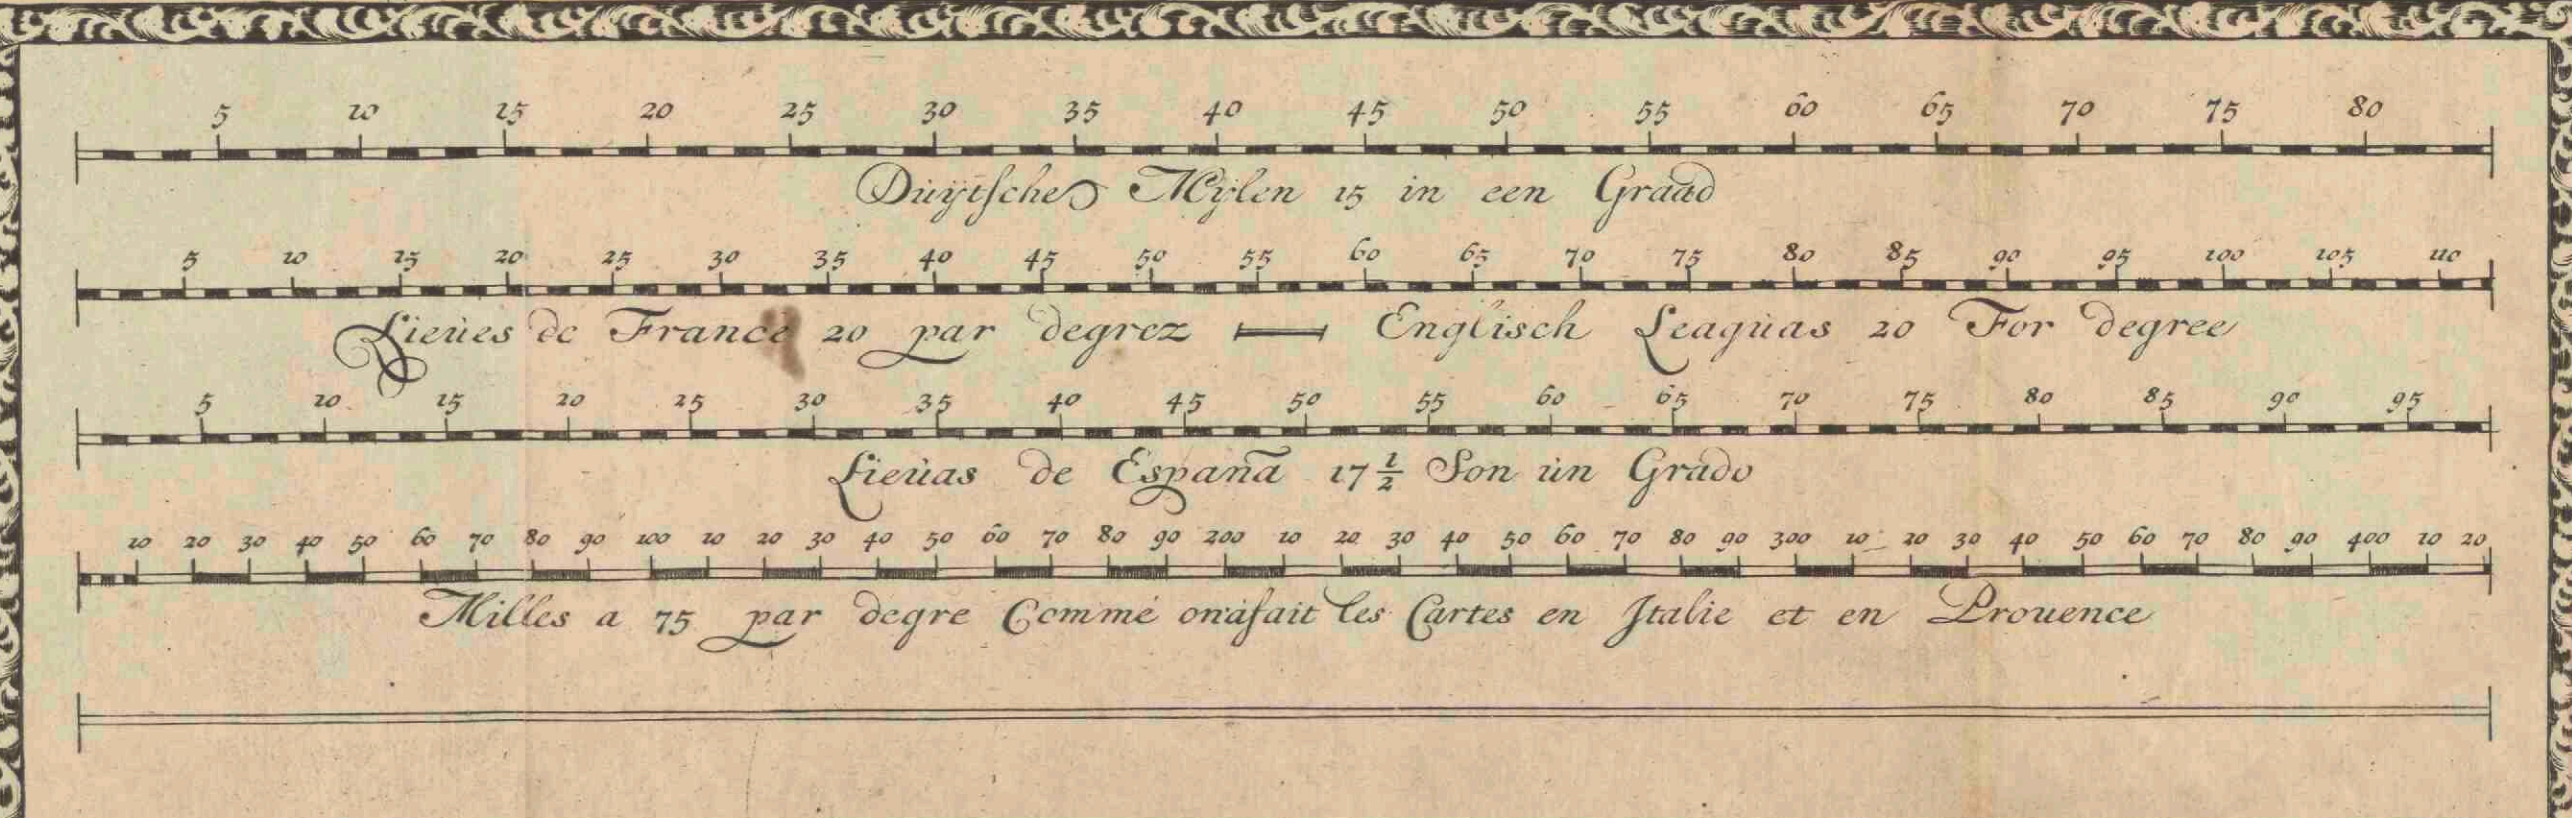 5 10 15 20 25 30 35 40 45 50 55 60 65 70 75 80
Duÿtsche Mÿlen 15 in een Graad
5 10 15 20 25 30 35 40 45 50 55 60 65 70 75 80 85 90 95 100 105 110
Lieùes de France 20 par degrez Englisch Leagùas 20 For degree
5 10 15 20 25 30 35 40 45 50 55 60 65 70 75 80 85 90 95
Lieùas de España 17 1/2 Son ùn Grado
10 20 30 40 50 60 70 80 90 100 10 20 30 40 50 60 70 80 90 200 10 20 30 40 50 60 70 80 90 300 10 20 30 40 50 60 70 80 90 400 10 20
Milles a 75 par degre Commé onàfait les Cartes en Italie et en Prouence